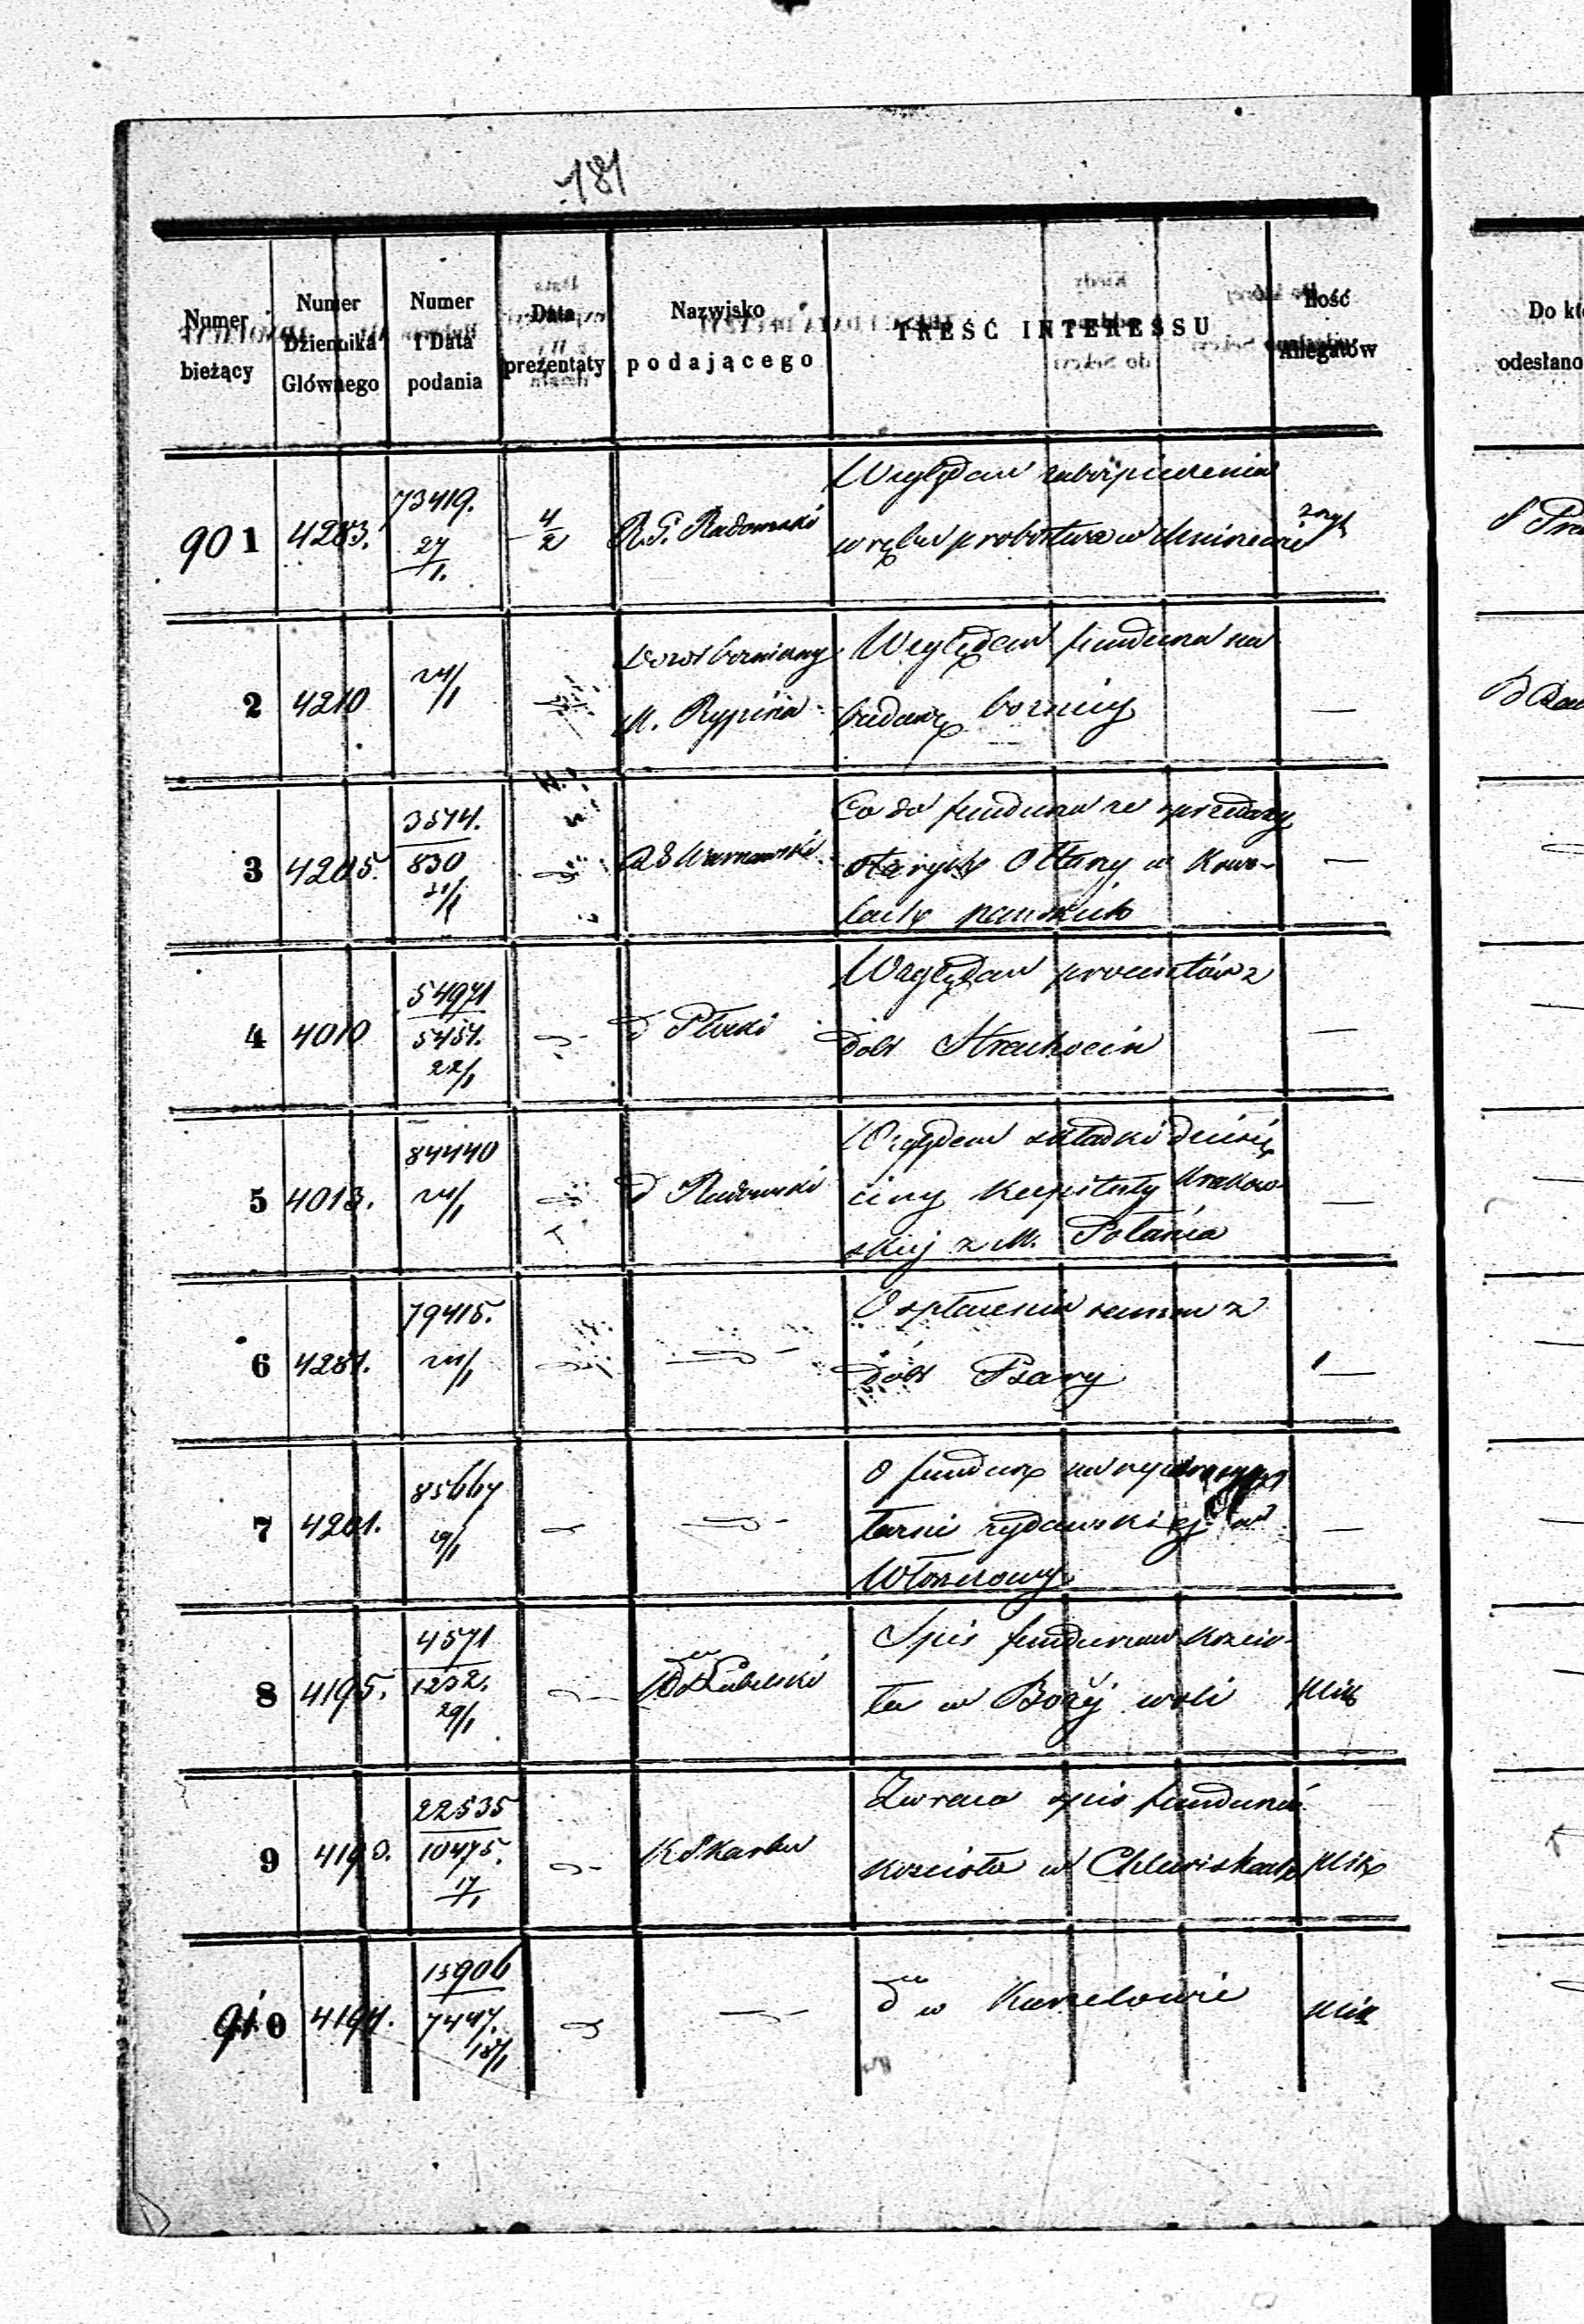 181
Numer bieżący
Numer Dziennika Głównego
Numer i Data podania
Data prezentaty
Nazwisko podającego
TREŚĆ INTERESSU
Ilość Allegatów
Do któ
odesłano
901 4283. 73419. 27/1. 4/2 R. G. Radomski Względem zabezpieczenia
wrębu probostwa w
2 4210 24/1 Dozór bożniczny Względem funduszu na
M. Rypina budowę bożnicy —
3 4205. 3574. 830 21/1 Co do funduszu ze sprzedaży
starych Ołtarzy w Kowa-
lach pańskich —
4 4010 54971 5457. 22/1 d Płocki Względem procentów z
dóbr Strachocin —
5 4013. 84440 24/1 d Radomski Względem składki dziesię
ciny Kapituły Krakow-
skiej z M. Połańca —
6 4281. 79415. 24/1 O spłacenie summ z
dóbr Psary 1
7 4201. 85667 19/1 O fundusz na
żydowskiej w
Włoszczowy —
8 4195. 4571 1232. 29/1 Lubelski Spis funduszów kościo-
ła w Bożej woli
9 4193. 22535 10475. 17/1 K Skarbu Zwraca spis funduszów
kościoła w Chlewiskach
910 4194. 15906 7497. 18/1 d w Kurzelowie